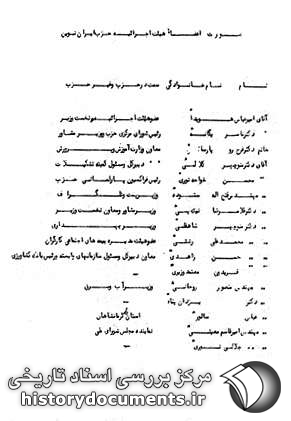 صورت اعضاء هیئت اجرائیه حزب ایران نوین
نام نام خانوادگی سمت در حزب و غیر حزب
آقای امیرعباس هویدا عضو هیئت اجرائیه و نخست وزیر
دکتر ناصر یگانه رئیس شورای مرکزی حزب و وزیر مشاور
خانم دکتر فرخ رو پارسا معاون وزارت آموزش و پرورش
آقای دکتر منوچهر کلالی دبیرکل و مسئول کمیته تشکیلات
محسن خواجه نوری رئیس فراکسیون پارلمانی حزب
مهندس فتح اله ستوده وزیر پست و تلگراف
دکتر غلامرضا نیک پی وزیر مشاور و معاون نخست وزیر
دکتر منوچهر شاهقلی وزیر بهداری
محمدعلی رشتی عضو هیئت مدیره بیمه های اجتماعی کارگران
حسن زاهدی معاون دبیرکل و مسئول سازمانهای وابسته و رئیس بانک کشاورزی
فریدون معتمد وزیری
مهندس منصور روحانی وزیر آب و برق
دکتر یزدان پناه
عباس سالور استاندار کرمانشاهان
مهندس امیرقاسم معینی نماینده مجلس شورای ملی
جلالی نوری
مرکز بررسی اسناد تاریخی
historydocuments.ir